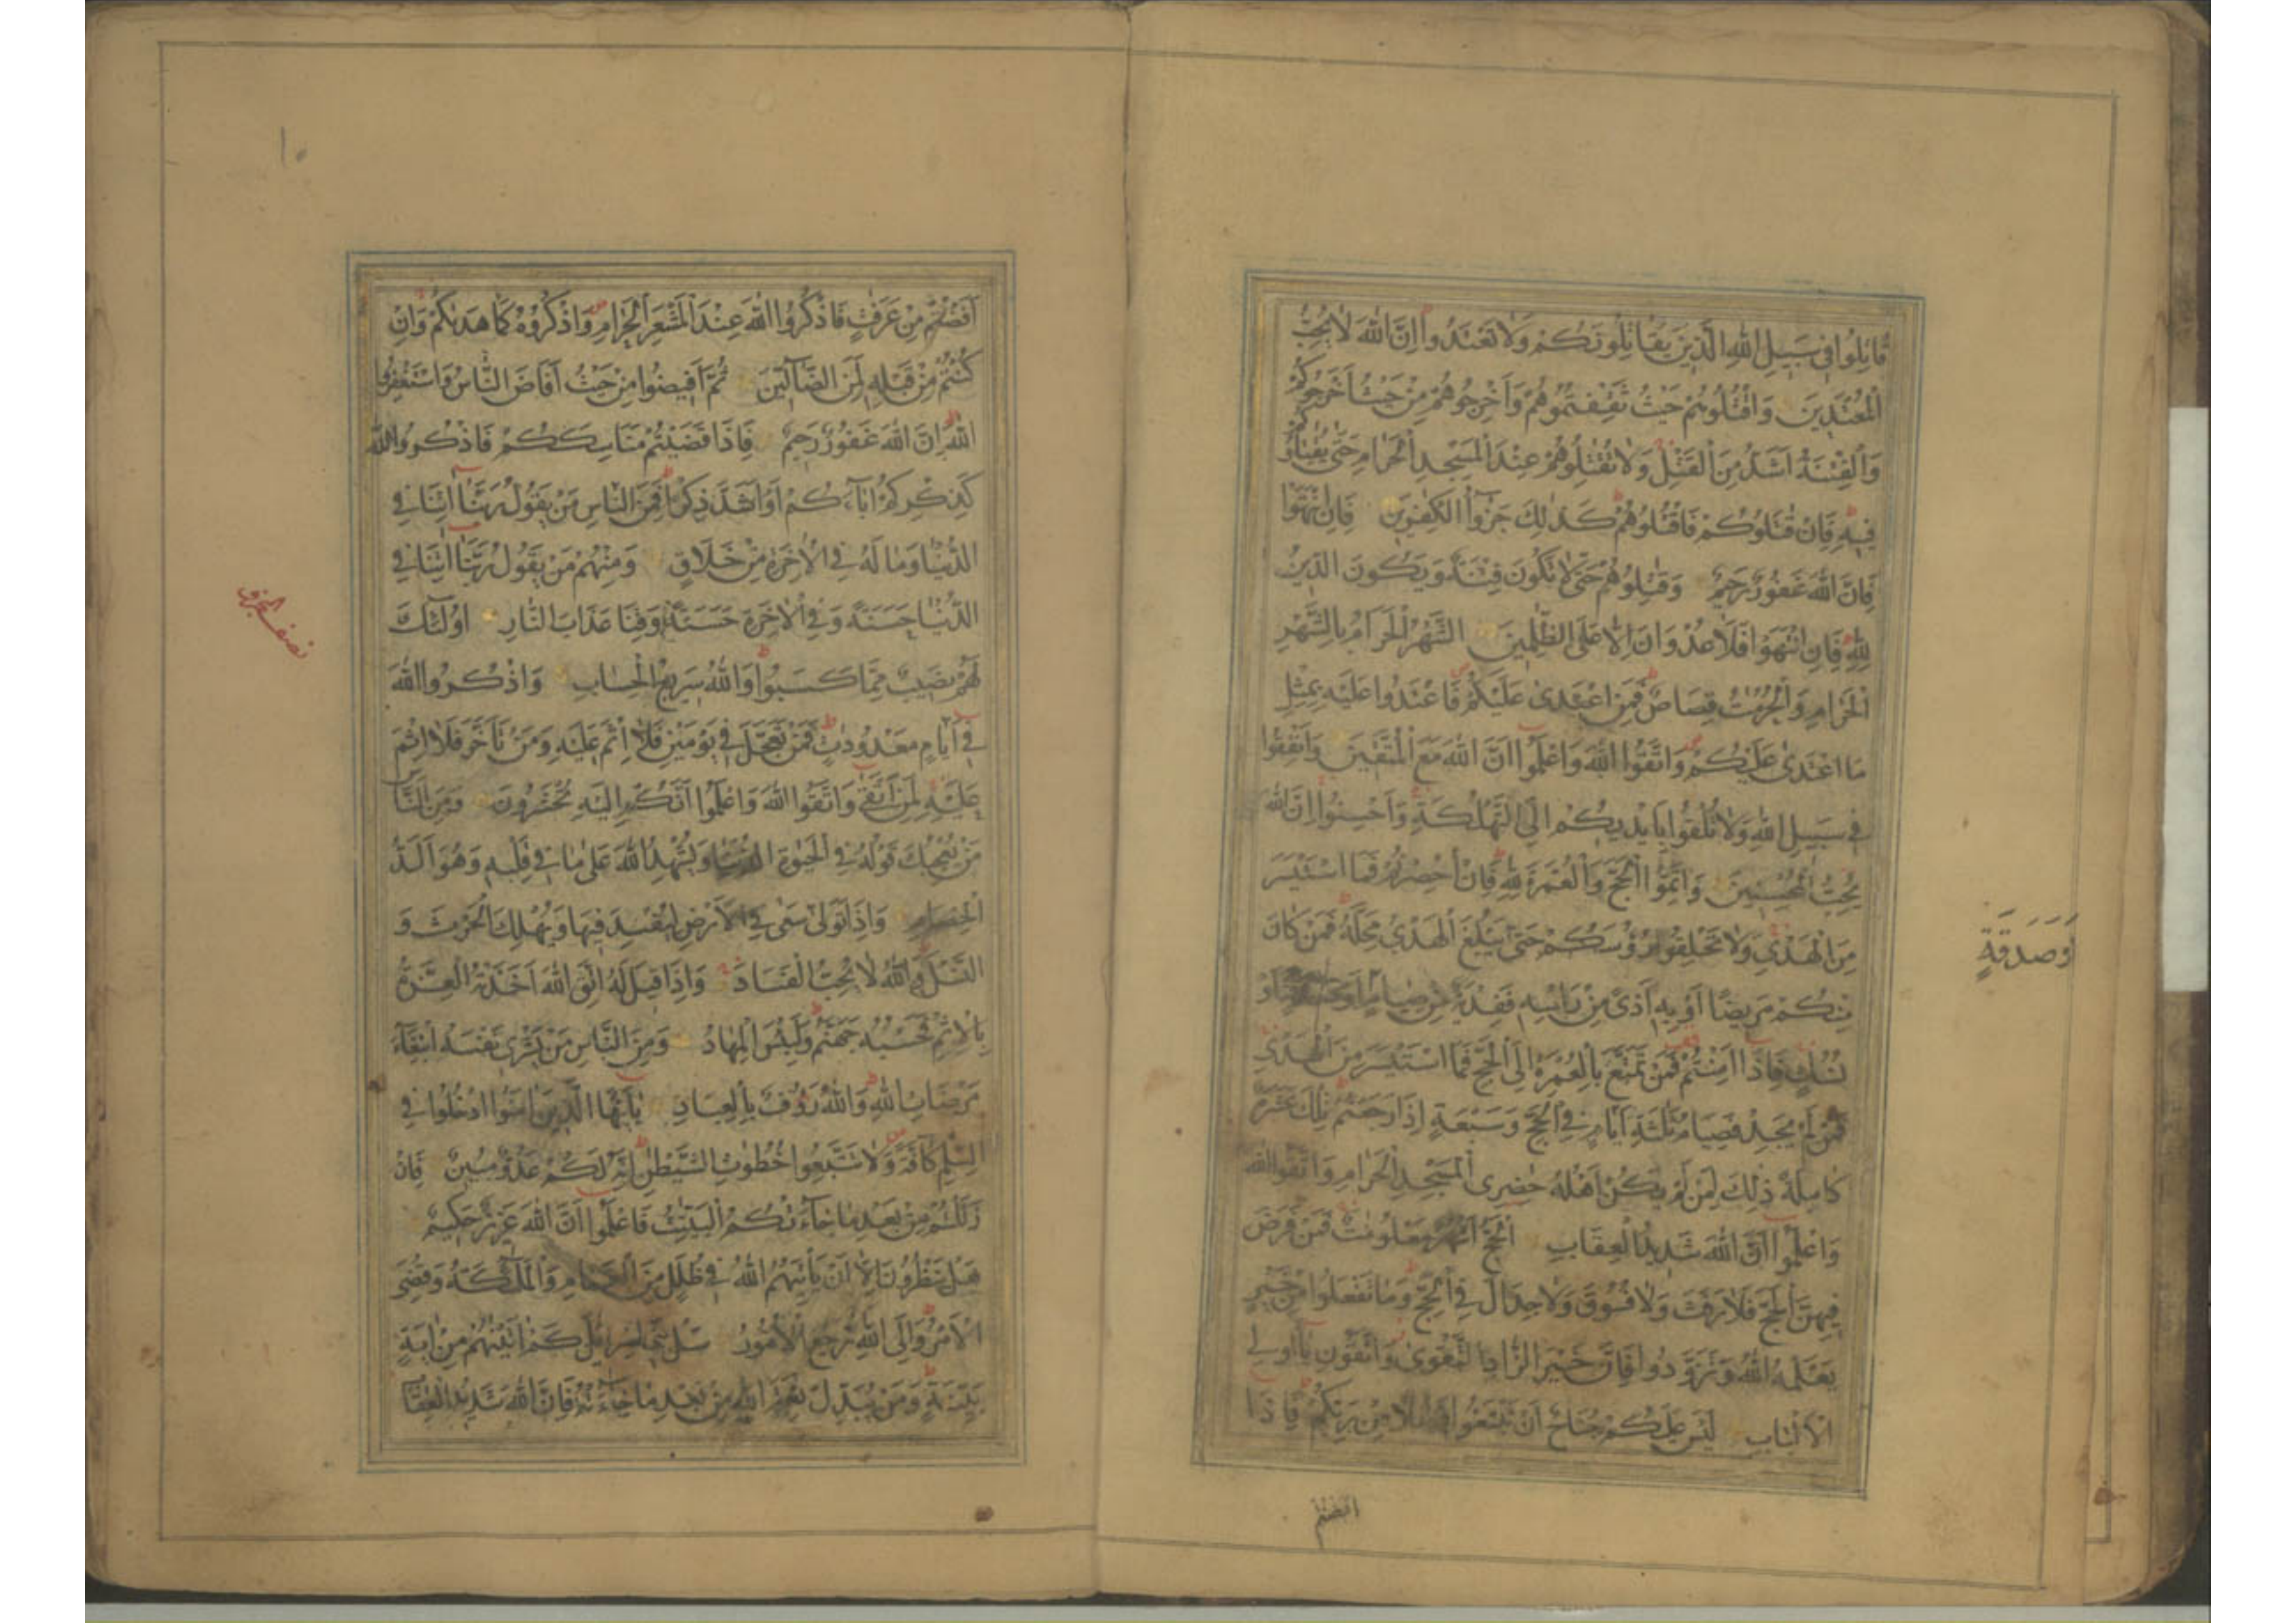 قَاتِلُوا فِي سَبِيلِ اللّٰهِ الَّذِينَ يُقَاتِلُونَكُمْ وَلَا تَعْتَدُوا إِنَّ اللّٰهَ لَا يُحِبُّ
الْمُعْتَدِينَ وَاقْتُلُوهُمْ حَيْثُ ثَقِفْتُمُوهُمْ وَأَخْرِجُوهُمْ مِنْ حَيْثُ أَخْرَجُوكُمْ
وَالْفِتْنَةُ أَشَدُّ مِنَ الْقَتْلِ وَلَا تُقٰتِلُوهُمْ عِنْدَ الْمَسْجِدِ الْحَرَامِ حَتّٰى يُقٰتِلُوكُمْ
فِيهِ فَإِنْ قٰتَلُوكُمْ فَاقْتُلُوهُمْ كَذٰلِكَ جَزَآءُ الْكٰفِرِينَ فَإِنِ انْتَهَوْا
فَإِنَّ اللّٰهَ غَفُورٌ رَحِيمٌ وَقٰتِلُوهُمْ حَتّٰى لَا تَكُونَ فِتْنَةٌ وَيَكُونَ الدِّينُ
لِلّٰهِ فَإِنِ انْتَهَوْا فَلَا عُدْوَانَ إِلَّا عَلَى الظّٰلِمِينَ الشَّهْرُ الْحَرَامُ بِالشَّهْرِ
الْحَرَامِ وَالْحُرُمٰتُ قِصَاصٌ فَمَنِ اعْتَدٰى عَلَيْكُمْ فَاعْتَدُوا عَلَيْهِ بِمِثْلِ
مَا اعْتَدٰى عَلَيْكُمْ وَاتَّقُوا اللّٰهَ وَاعْلَمُوا أَنَّ اللّٰهَ مَعَ الْمُتَّقِينَ وَأَنْفِقُوا
فِي سَبِيلِ اللّٰهِ وَلَا تُلْقُوا بِأَيْدِيكُمْ إِلَى التَّهْلُكَةِ وَأَحْسِنُوا إِنَّ اللّٰهَ
يُحِبُّ الْمُحْسِنِينَ وَأَتِمُّوا الْحَجَّ وَالْعُمْرَةَ لِلّٰهِ فَإِنْ أُحْصِرْتُمْ فَمَا اسْتَيْسَرَ
مِنَ الْهَدْيِ وَلَا تَحْلِقُوا رُؤُسَكُمْ حَتّٰى يَبْلُغَ الْهَدْيُ مَحِلَّهُ فَمَنْ كَانَ
مِنْكُمْ مَرِيضًا أَوْ بِهِ أَذًى مِنْ رَأْسِهِ فَفِدْيَةٌ مِنْ صِيَامٍ أَوْ
أَوْ صَدَقَةٍ
نُسُكٍ فَإِذَا أَمِنْتُمْ فَمَنْ تَمَتَّعَ بِالْعُمْرَةِ إِلَى الْحَجِّ فَمَا اسْتَيْسَرَ مِنَ الْهَدْيِ
فَمَنْ لَمْ يَجِدْ فَصِيَامُ ثَلٰثَةِ أَيَّامٍ فِي الْحَجِّ وَسَبْعَةٍ إِذَا رَجَعْتُمْ تِلْكَ عَشَرَةٌ
كَامِلَةٌ ذٰلِكَ لِمَنْ لَمْ يَكُنْ أَهْلُهُ حَاضِرِي الْمَسْجِدِ الْحَرَامِ وَاتَّقُوا اللّٰهَ
وَاعْلَمُوا أَنَّ اللّٰهَ شَدِيدُ الْعِقَابِ الْحَجُّ أَشْهُرٌ مَعْلُومٰتٌ فَمَنْ فَرَضَ
فِيهِنَّ الْحَجَّ فَلَا رَفَثَ وَلَا فُسُوقَ وَلَا جِدَالَ فِي الْحَجِّ وَمَا تَفْعَلُوا مِنْ خَيْرٍ
يَعْلَمْهُ اللّٰهُ وَتَزَوَّدُوا فَإِنَّ خَيْرَ الزَّادِ التَّقْوٰى وَاتَّقُونِ يٰأُولِي
الْأَلْبَابِ لَيْسَ عَلَيْكُمْ جُنَاحٌ أَنْ تَبْتَغُوا فَضْلًا مِنْ رَبِّكُمْ فَإِذَا
افضتم
١٠
أَفَضْتُمْ مِنْ عَرَفٰتٍ فَاذْكُرُوا اللّٰهَ عِنْدَ الْمَشْعَرِ الْحَرَامِ وَاذْكُرُوهُ كَمَا هَدٰىكُمْ وَإِنْ
كُنْتُمْ مِنْ قَبْلِهِ لَمِنَ الضَّآلِّينَ ثُمَّ أَفِيضُوا مِنْ حَيْثُ أَفَاضَ النَّاسُ وَاسْتَغْفِرُوا
اللّٰهَ إِنَّ اللّٰهَ غَفُورٌ رَحِيمٌ فَإِذَا قَضَيْتُمْ مَنَاسِكَكُمْ فَاذْكُرُوا اللّٰهَ
كَذِكْرِكُمْ اٰبَآءَكُمْ أَوْ أَشَدَّ ذِكْرًا فَمِنَ النَّاسِ مَنْ يَقُولُ رَبَّنَا اٰتِنَا فِي
الدُّنْيَا وَمَا لَهُ فِي الْاٰخِرَةِ مِنْ خَلَاقٍ وَمِنْهُمْ مَنْ يَقُولُ رَبَّنَا اٰتِنَا فِي
الدُّنْيَا حَسَنَةً وَفِي الْاٰخِرَةِ حَسَنَةً وَقِنَا عَذَابَ النَّارِ أُولٰئِكَ
لَهُمْ نَصِيبٌ مِمَّا كَسَبُوا وَاللّٰهُ سَرِيعُ الْحِسَابِ وَاذْكُرُوا اللّٰهَ
فِي أَيَّامٍ مَعْدُودٰتٍ فَمَنْ تَعَجَّلَ فِي يَوْمَيْنِ فَلَا إِثْمَ عَلَيْهِ وَمَنْ تَأَخَّرَ فَلَا إِثْمَ
عَلَيْهِ لِمَنِ اتَّقٰى وَاتَّقُوا اللّٰهَ وَاعْلَمُوا أَنَّكُمْ إِلَيْهِ تُحْشَرُونَ وَمِنَ النَّاسِ
مَنْ يُعْجِبُكَ قَوْلُهُ فِي الْحَيٰوةِ الدُّنْيَا وَيُشْهِدُ اللّٰهَ عَلٰى مَا فِي قَلْبِهِ وَهُوَ أَلَدُّ
الْخِصَامِ وَإِذَا تَوَلّٰى سَعٰى فِي الْأَرْضِ لِيُفْسِدَ فِيهَا وَيُهْلِكَ الْحَرْثَ وَ
النَّسْلَ وَاللّٰهُ لَا يُحِبُّ الْفَسَادَ وَإِذَا قِيلَ لَهُ اتَّقِ اللّٰهَ أَخَذَتْهُ الْعِزَّةُ
بِالْإِثْمِ فَحَسْبُهُ جَهَنَّمُ وَلَبِئْسَ الْمِهَادُ وَمِنَ النَّاسِ مَنْ يَشْرِي نَفْسَهُ ابْتِغَآءَ
مَرْضَاتِ اللّٰهِ وَاللّٰهُ رَؤُفٌ بِالْعِبَادِ يٰأَيُّهَا الَّذِينَ اٰمَنُوا ادْخُلُوا فِي
السِّلْمِ كَآفَّةً وَلَا تَتَّبِعُوا خُطُوٰتِ الشَّيْطٰنِ إِنَّهُ لَكُمْ عَدُوٌّ مُبِينٌ فَإِنْ
زَلَلْتُمْ مِنْ بَعْدِ مَا جَآءَتْكُمُ الْبَيِّنٰتُ فَاعْلَمُوا أَنَّ اللّٰهَ عَزِيزٌ حَكِيمٌ
هَلْ يَنْظُرُونَ إِلَّا أَنْ يَأْتِيَهُمُ اللّٰهُ فِي ظُلَلٍ مِنَ الْغَمَامِ وَالْمَلٰئِكَةُ وَقُضِيَ
الْأَمْرُ وَإِلَى اللّٰهِ تُرْجَعُ الْأُمُورُ سَلْ بَنِي إِسْرَائِيلَ كَمْ اٰتَيْنٰهُمْ مِنْ اٰيَةٍ
بَيِّنَةٍ وَمَنْ يُبَدِّلْ نِعْمَةَ اللّٰهِ مِنْ بَعْدِ مَا جَآءَتْهُ فَإِنَّ اللّٰهَ شَدِيدُ الْعِقَا
نصف الحزب